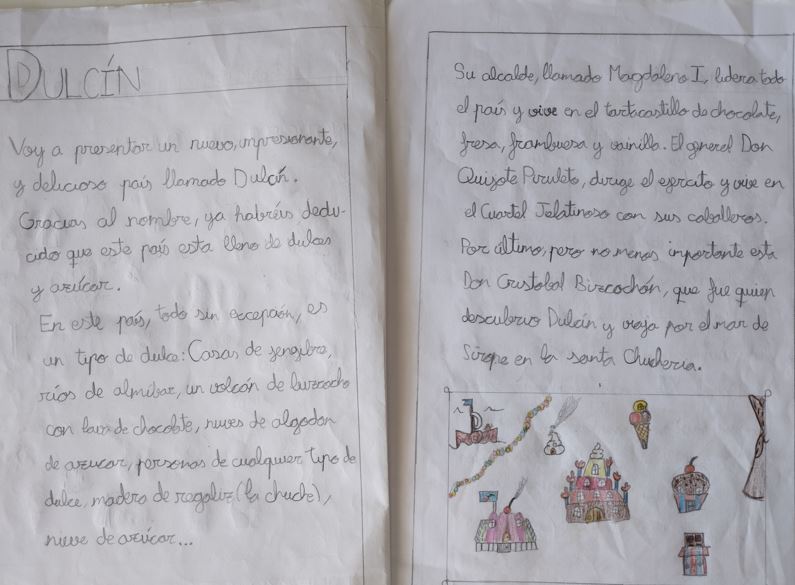 DULCÍN
Voy a presentar un nuevo, impresionante,
y delicioso país llamado Dulcín.
Gracias al nombre, ya habréis dedu-
cido que este país esta lleno de dulces
y azúcar.
En este país, todo sin excepción, es
un tipo de dulce: Casas de jengibre,
ríos de almíbar, un volcán de
con lava de chocolate, nuves de algodon
de azucar, personas de cualquier tipo de
dulce, madera de regaliz (la chuche),
nieve de azúcar...
Su alcalde, llamado Magdaleno I, lidera todo
el país y vive en el tartacastillo de chocolate,
fresa, frambuesa y vainilla. El general Don
Quijote Piruleto, dirige el ejercito y vive en
el Cuartel Jelatinoso con sus caballeros.
Por último, pero no menos importante esta
Don Cristobal Bizcochón, que fue quien
descubrio Dulcín y viaja por el mar de
Sirope en la santa Chucheria.